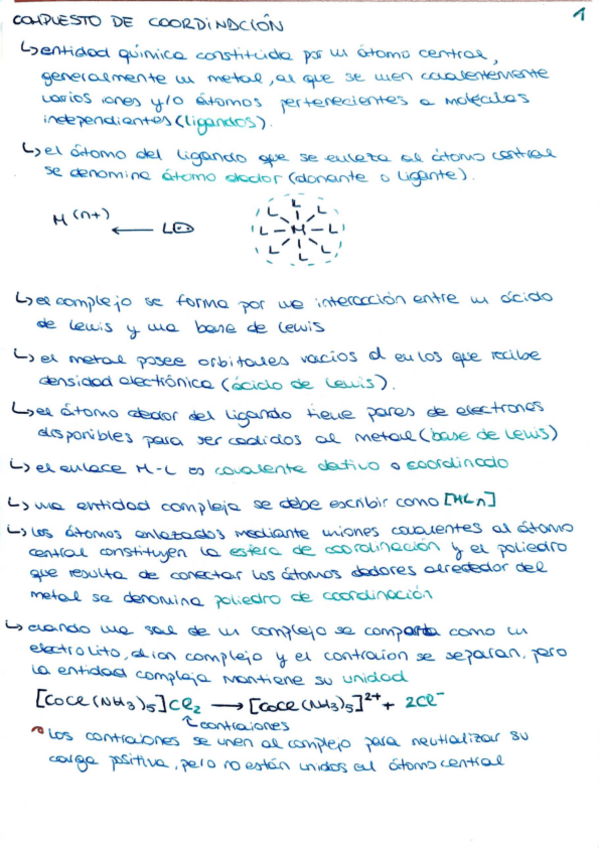 COMPUESTO DE COORDINACIÓN 1
↳ entidad química constituida por un átomo central,
generalmente un metal, al que se unen covalentemente
varios iones y/o átomos pertenecientes a moléculas
independientes (ligandos).
↳ el átomo del ligando que se enlaza al átomo central
se denomina átomo dador (donante o ligante).
M(n+) ← L
L L L
L - M - L
L L L
↳ el complejo se forma por una interacción entre un ácido
de Lewis y una base de Lewis
↳ el metal posee orbitales vacíos d en los que recibe
densidad electrónica (ácido de Lewis).
↳ el átomo dador del ligando tiene pares de electrones
disponibles para ser cedidos al metal (base de Lewis)
↳ el enlace M-L es covalente dativo o coordinado
↳ una entidad compleja se debe escribir como [MLn]
↳ los átomos enlazados mediante uniones covalentes al átomo
central constituyen la esfera de coordinación y el poliedro
que resulta de conectar los átomos dadores alrededor del
metal se denomina poliedro de coordinación
↳ cuando una sal de un complejo se comporta como un
electrolito, el ion complejo y el contraion se separan, pero
la entidad compleja mantiene su unidad
[CoCl(NH3)5]Cl2 → [CoCl(NH3)5]2+ + 2Cl-
contraiones
Los contraiones se unen al complejo para neutralizar su
carga positiva, pero no están unidos al átomo central